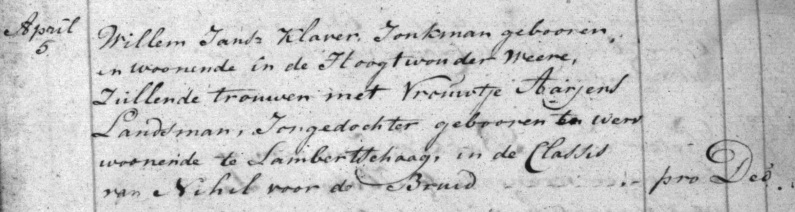 April
5
Willem Jansz Klaver, Jonkman gebooren
en woonende in de Hoogtwouder Weere,
Zullende trouwen met Vrouwtje Aarjens
Landsman, Jongedochter gebooren en
woonende te Lambertschaag, in de Classis
van Nihil voor de Bruid - pro Deo.